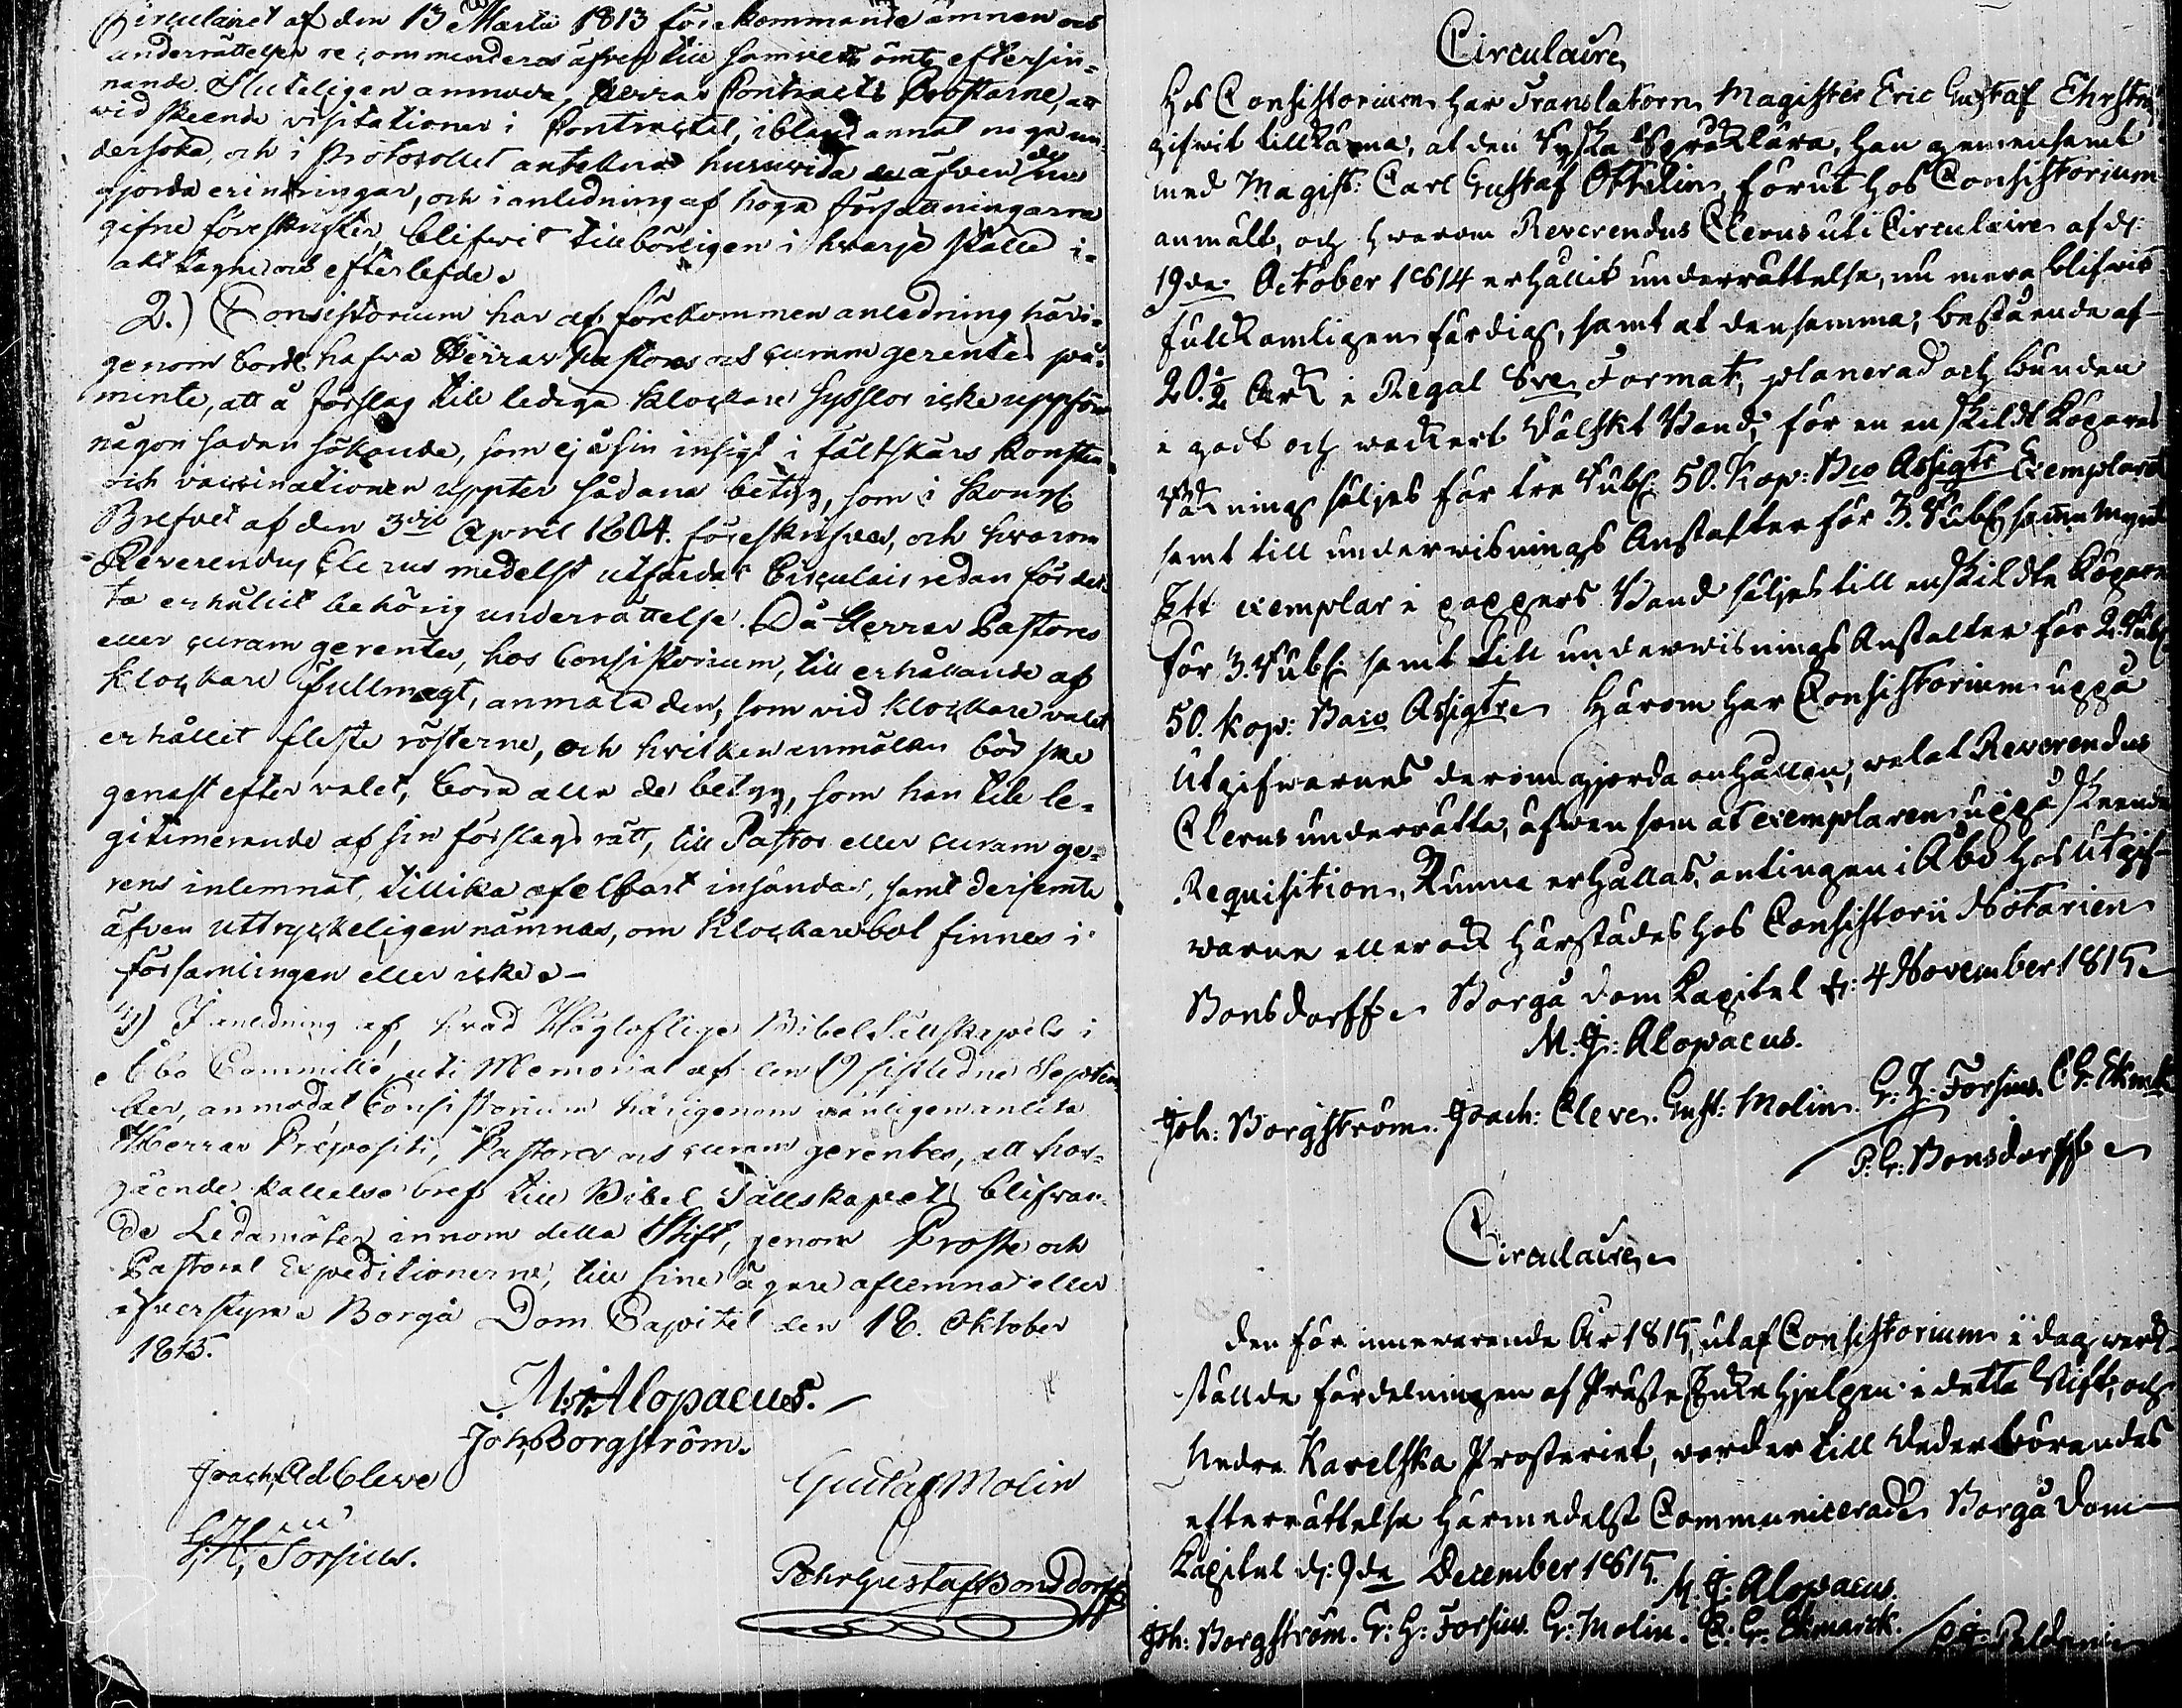 Circulairet af den 13 Martii 1813 förekommande ämnen och
underrättelser recommenderas äfven till samvets ömt eftersin-
nande. Sluteligen anmodas, Herrar Contracts Prostarne, att
vid skeende visitationer i Contractet, ibland annat noga un-
dersöka, och i Protocollet anteckna huruvida äfven de nu
gjorda erinringar, och i anledning af höga författningarna
gifne föreskrifter, blifvit tillbörligen i hvarje ställe i-
akttagne och efterlefde.
2.) Consistorium har af förekommen anledning häri-
genom bordt hafva Herrar Pastores och curam gerentes på-
minte, att å förslag till lediga klockare sysslor icke uppföra
någon sådan sökande, som ej å sin insigt i fältskärs konsten
och vaccinationen uppter sådana betyg, som i Kongl.
Brefvet af den 3die April 1804. föreskrifves, och hvarom
Reverendus Clerus medelst utfärdat Circulair redan för det-
ta erhållit behörig underrättelse. Då Herrar Pastores
eller curam gerentes, hos Consistorium, till erhållande af
klockare Fullmagt, anmäla den, som vid klockare valet
erhållit fleste rösterne, och hvilken anmälan bör ske
genast efter valet, böra alla de betyg, som han till le-
gitimerande af sin förslags rätt, till Pastor eller curam ge-
rens inlemnat, tillika ofelbart insändas, samt derjemte
äfven uttryckeligen nämnas, om klockarebol finnes i
församlingen eller icke.
3) I anledning af, hvad Högloflige Bibel Sällskapets i
Åbo Committé, uti Memorial af den 9 sistledne Septem-
ber, anmodat Consistorium härigenom vänligen anlita
Herrar Præpositi, Pastores och curam gerentes, att hos-
gående kallelsebref till Bibel Sällskapets blifvan-
de Ledamöter innom detta Stift, genom Proste och
Pastoral Expeditionerne, till sine ägare aflemnas eller
öfverstyra. Borgå Dom Capitel den 18. Oktober
1815.
M: J: Alopaeus.
Joh: Borgström.
Joach: Ad Cleve
Gustaf Molin
G: H: Forsius.
Pehr Gustaf Bonsdorff
Circulaire
Hos Consistorium har Translatorn Magister Eric Gustaf Ehrström
gifvit tillkänna, at den Ryska Språklära, han gemensamt
med Magist: Carl Gustaf Ottelin, förut hos Consistorium
anmält, och hvarom Reverendus Clerus uti Circulaire af d:
19de October 1814 erhållit underrättelse, nu mera blifvit
fullkomligen färdig, samt at densamma, bestående af
20.½ Ark i Regal 8vo Format, planerad och bunden
i godt och wackert Wälskt Band, för en enskild Köpares
räkning säljes för tre Rubl: 50. Kop: Bco Assigte Exemplaret
samt till underwisnings Anstalter för 3. Rubl: samma Mynt
Ett exemplar i pappers Band säljes till enskildte Köpare
för 3. Rubl: samt till underwisnings Anstalter för 2. Rubl:
50. kop: Baco Assigter. Härom har Consistorium uppå
Utgifvarnes derom gjorda anhållan, welat Reverendus
Clerus underrätta, äfven som at exemplaren uppå skeende
Requisition, kunna erhållas, antingen i Åbo hos Utgif-
varne eller ock härstädes hos Consistorii Notarien
Bonsdorff. Borgå Dom Capitel d: 4 November 1815.
M: J: Alopaeus.
Joh: Borgström. Joach: Cleve. Gust: Molin. G: H: Forsius. C G: Ekmark
P: G: Bonsdorff
Circulaire
Den för innewarande År 1815, utaf Consistorium i dag werk-
ställde fördelningen af Präste Enke hjelpen i detta Stift, och
Nedre Karelska Prosteriet, warder till wederbörandes
efterrättelse härmedelst Communicerade. Borgå Dom
Kapitel d: 9de December 1815.
M. J: Alopaeus.
Joh: Borgström. G: H: Forsius. G: Molin. C: G: Ekmarck.